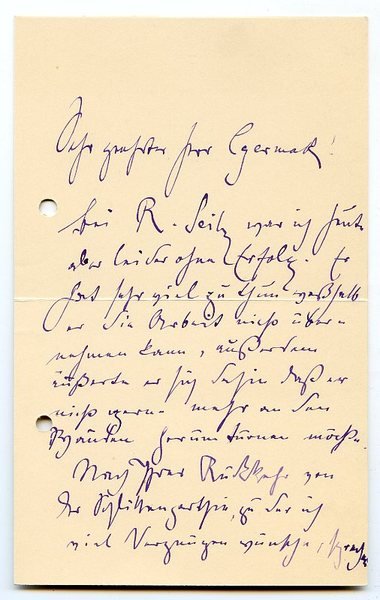 Sehr geehrter Herr Czermak!
bei R. Seitz war ich heute
aber leider ohne Erfolg. Er
hat sehr viel zu thun weßhalb
er die Arbeit nicht über-
nehmen kann, außerdem
äußerte er sich dahin daß er
nicht gerne mehr an den
Wänden herumturnen möchte.
Nach Ihrer Rückkehr von
der Schlittenparthie, zu der ich
viel Vergnügen wünsche,